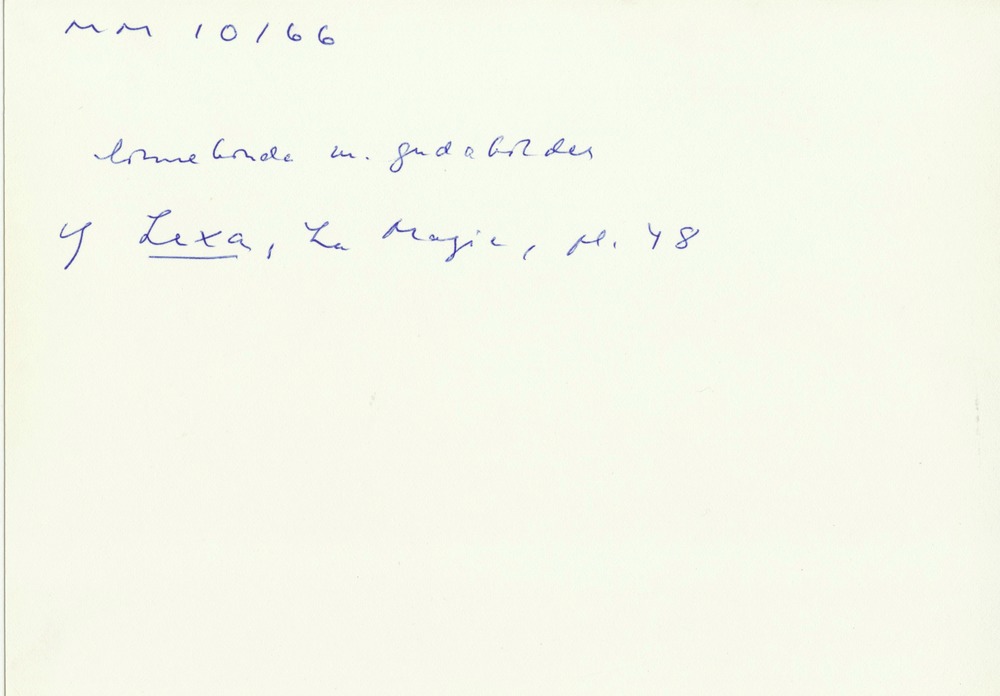 MM 10/66
linnebinda m. gudabilder
cf Lexa, La Magie, pl. 48